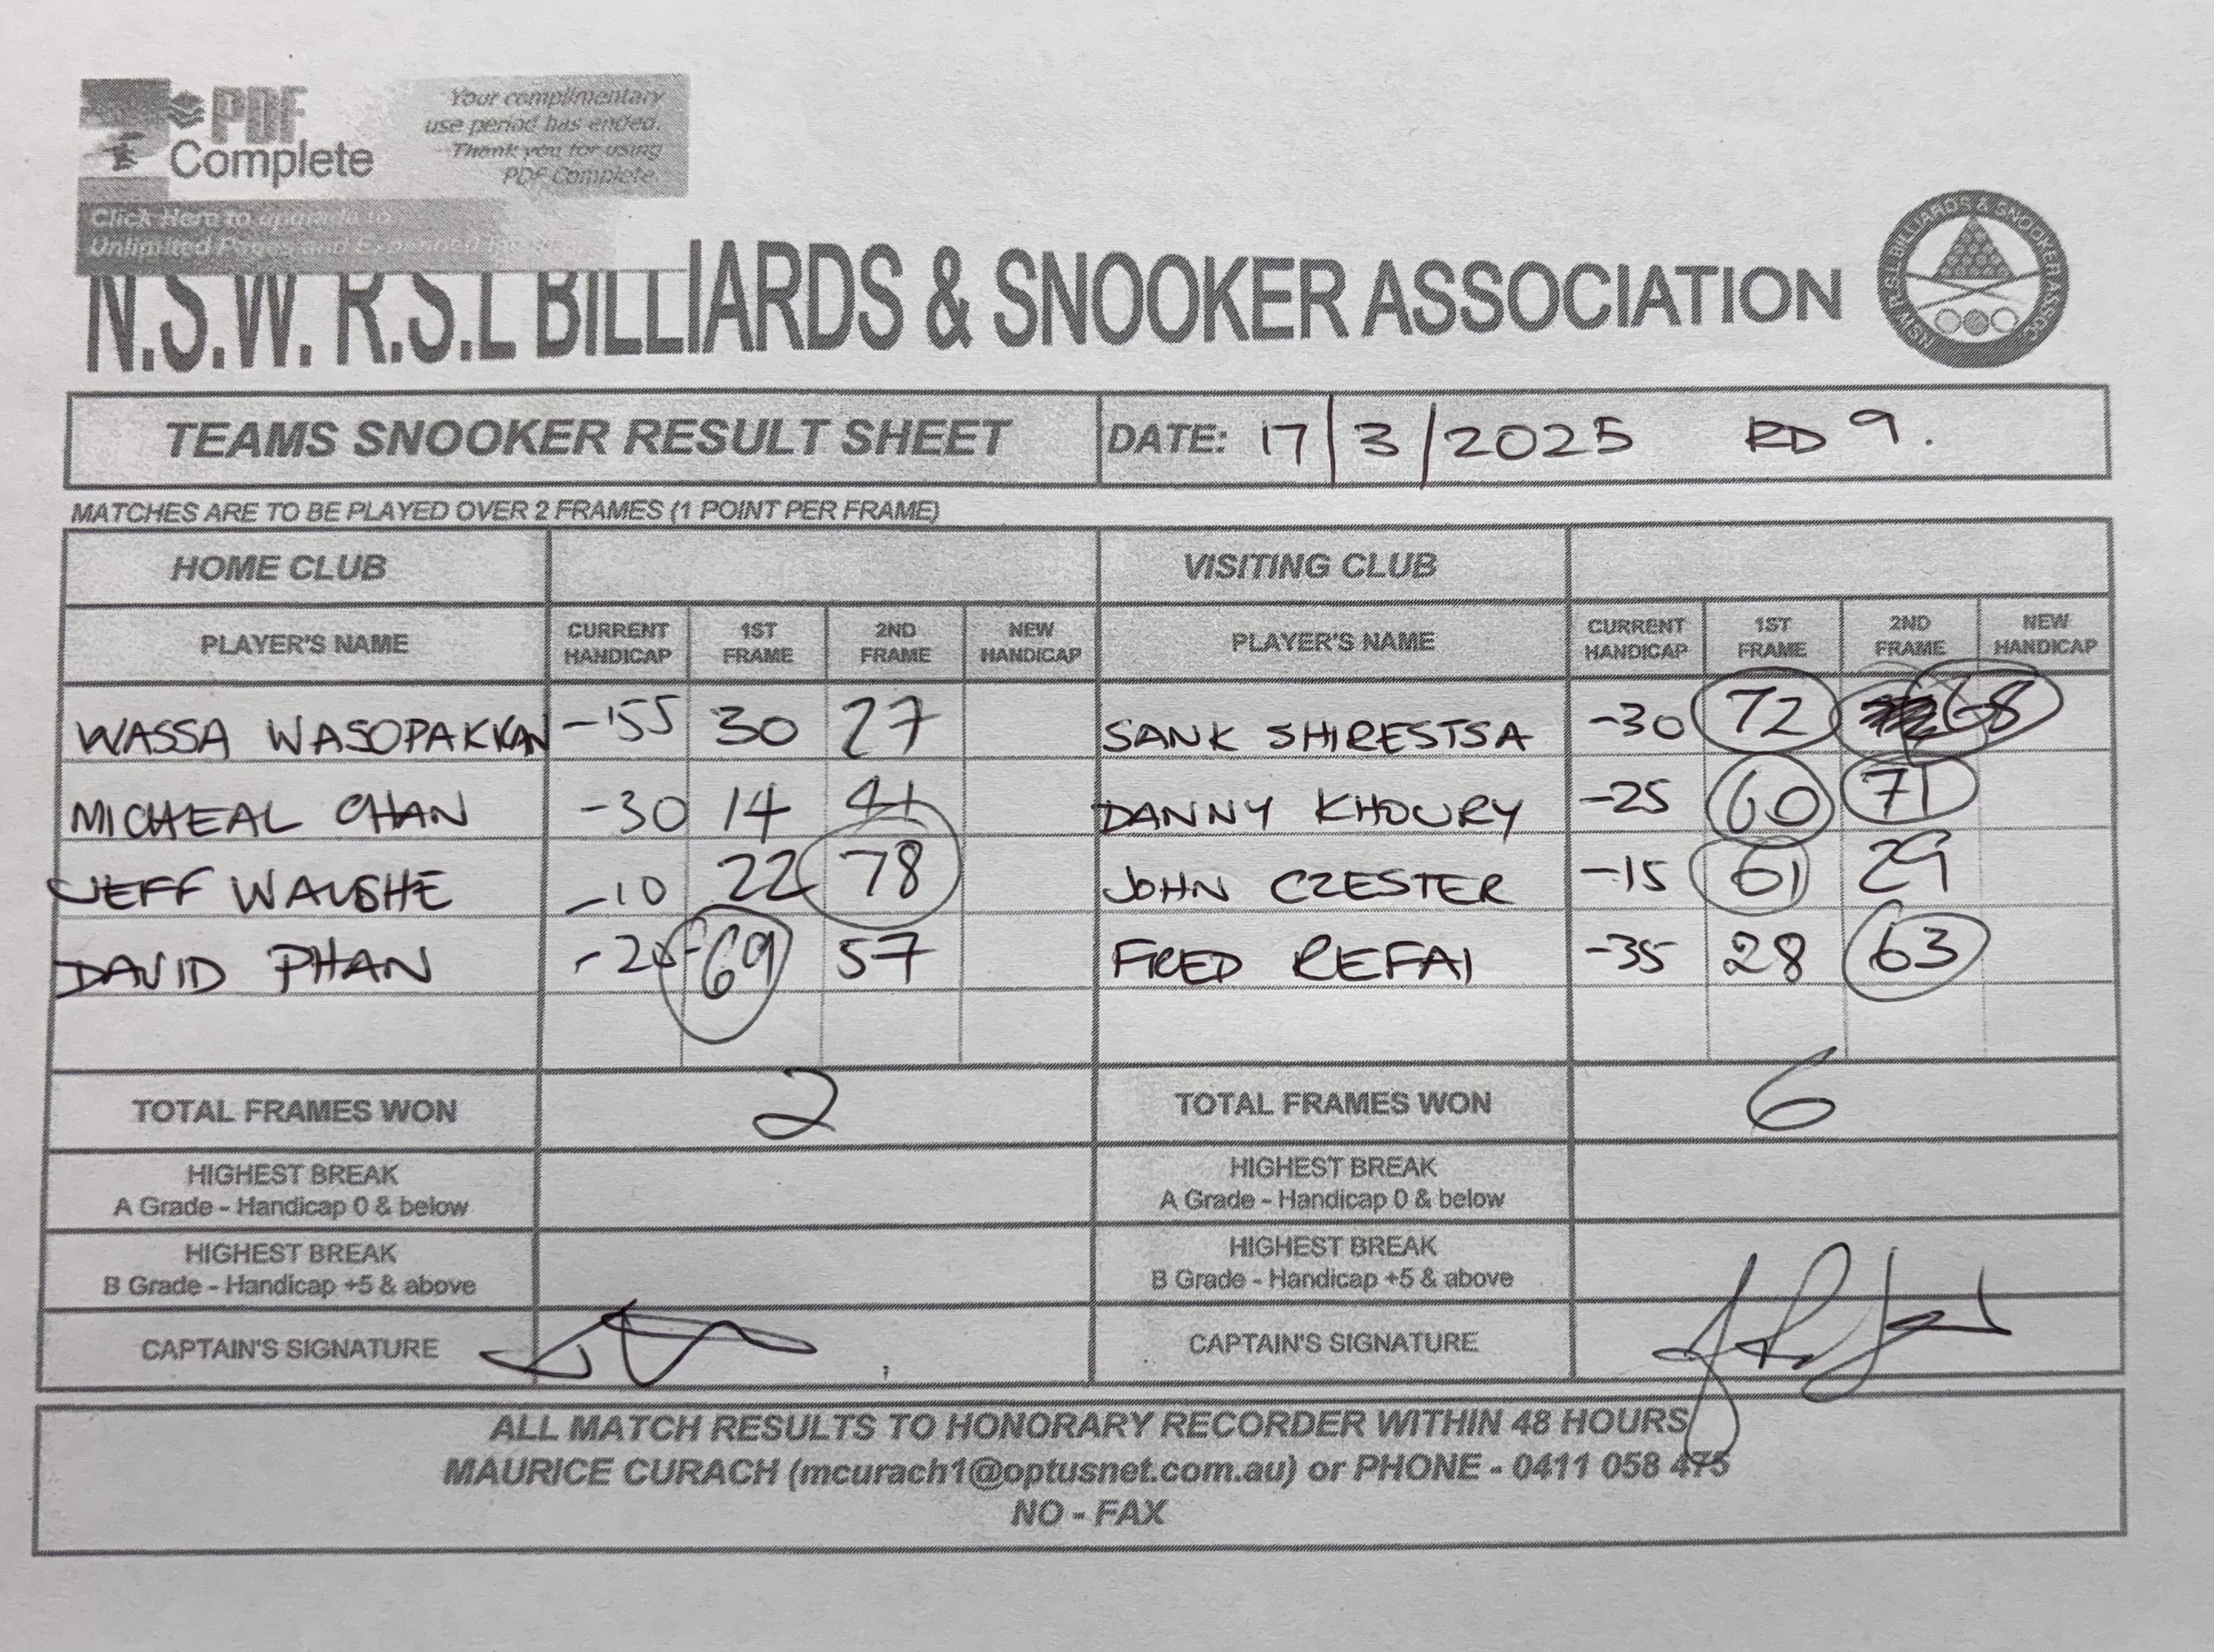 PDF
Complete
Your complimentary
use period has ended.
Thank you for using
PDF Complete.
Click Here to upgrade to
Unlimited Pages and Expanded
N.S.W. R.S.L BILLIARDS & SNOOKER ASSOCIATION
NSW R.S.L BILLIARDS & SNOOKER ASSOC.
TEAMS SNOOKER RESULT SHEET DATE: 17/3/2025 RD 9.
MATCHES ARE TO BE PLAYED OVER 2 FRAMES (1 POINT PER FRAME)
HOME CLUB VISITING CLUB
PLAYER'S NAME CURRENT HANDICAP 1ST FRAME 2ND FRAME NEW HANDICAP PLAYER'S NAME CURRENT HANDICAP 1ST FRAME 2ND FRAME NEW HANDICAP
WASSA WASOPAKKAN -155 30 27 SANK SHIRESTSA -30 72 68
MICHEAL CHAN -30 14 41 DANNY KHOURY -25 60 71
JEFF WALSHE -10 22 78 JOHN CZESTER -15 61 29
DAVID PHAN 69 57 FRED REFAI -35 28 63
TOTAL FRAMES WON 2 TOTAL FRAMES WON 6
HIGHEST BREAK HIGHEST BREAK
A Grade - Handicap 0 & below A Grade - Handicap 0 & below
HIGHEST BREAK HIGHEST BREAK
B Grade - Handicap +5 & above B Grade - Handicap +5 & above
CAPTAIN'S SIGNATURE CAPTAIN'S SIGNATURE
ALL MATCH RESULTS TO HONORARY RECORDER WITHIN 48 HOURS
MAURICE CURACH (mcurach1@optusnet.com.au) or PHONE - 0411 058 475
NO - FAX